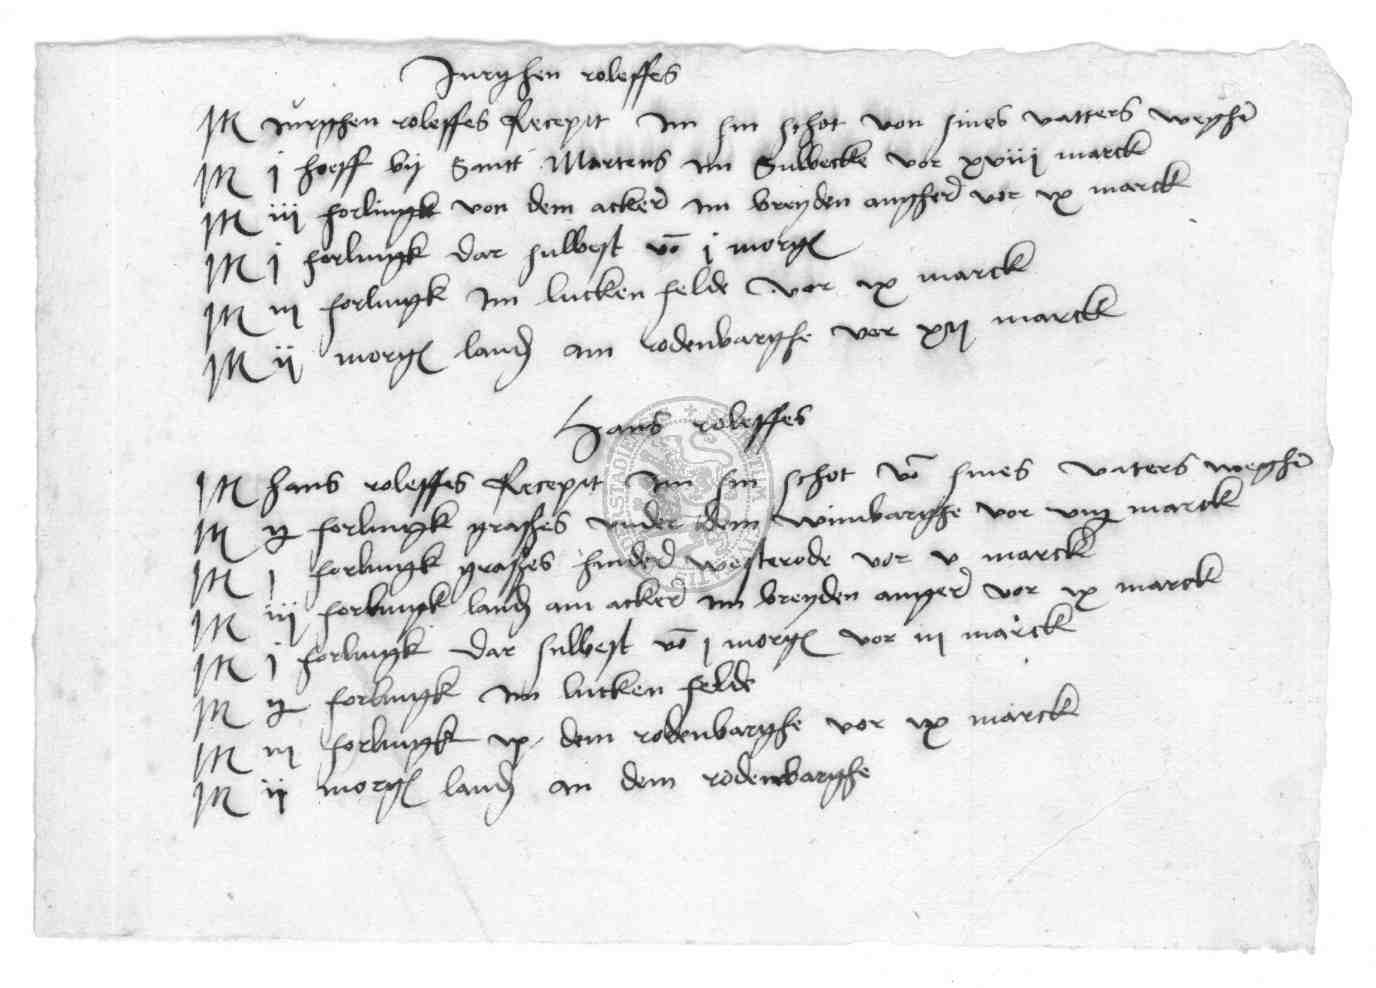 Jurghen roleffes
Itm Jurghen roleffes Recepit Im sin schot von sines vatters weghen
Itm j hoeff bij Sanct Martens im Sulbecke vor xviij marck
Itm iij forlingk von dem acker im breyden angher vor ix marck
Itm j forlingk dar sulbest vo j morgen
Itm iij forlingk Im lucken felde vor ix marck
Itm ij morgen landes am rodenbarghe vor xij marck
Hans roleffes
Itm hans roleffes Recepit Im sin schot vo sines vaters weghen
Itm ij forlingk grasses under dem winbarghe vor viij marck
Itm j forlingk grasses hinder westerode vor v marck
Itm iij forlingk landes am acker im breyden anger vor ix marck
Itm j forlingk dar sulbest vo j morgen vor iij marck
Itm ij forlingk im lucken felde
Itm iij forlingk up dem rodenbarghe vor ix marck
Itm ij morgen landes an dem rodenbarghe